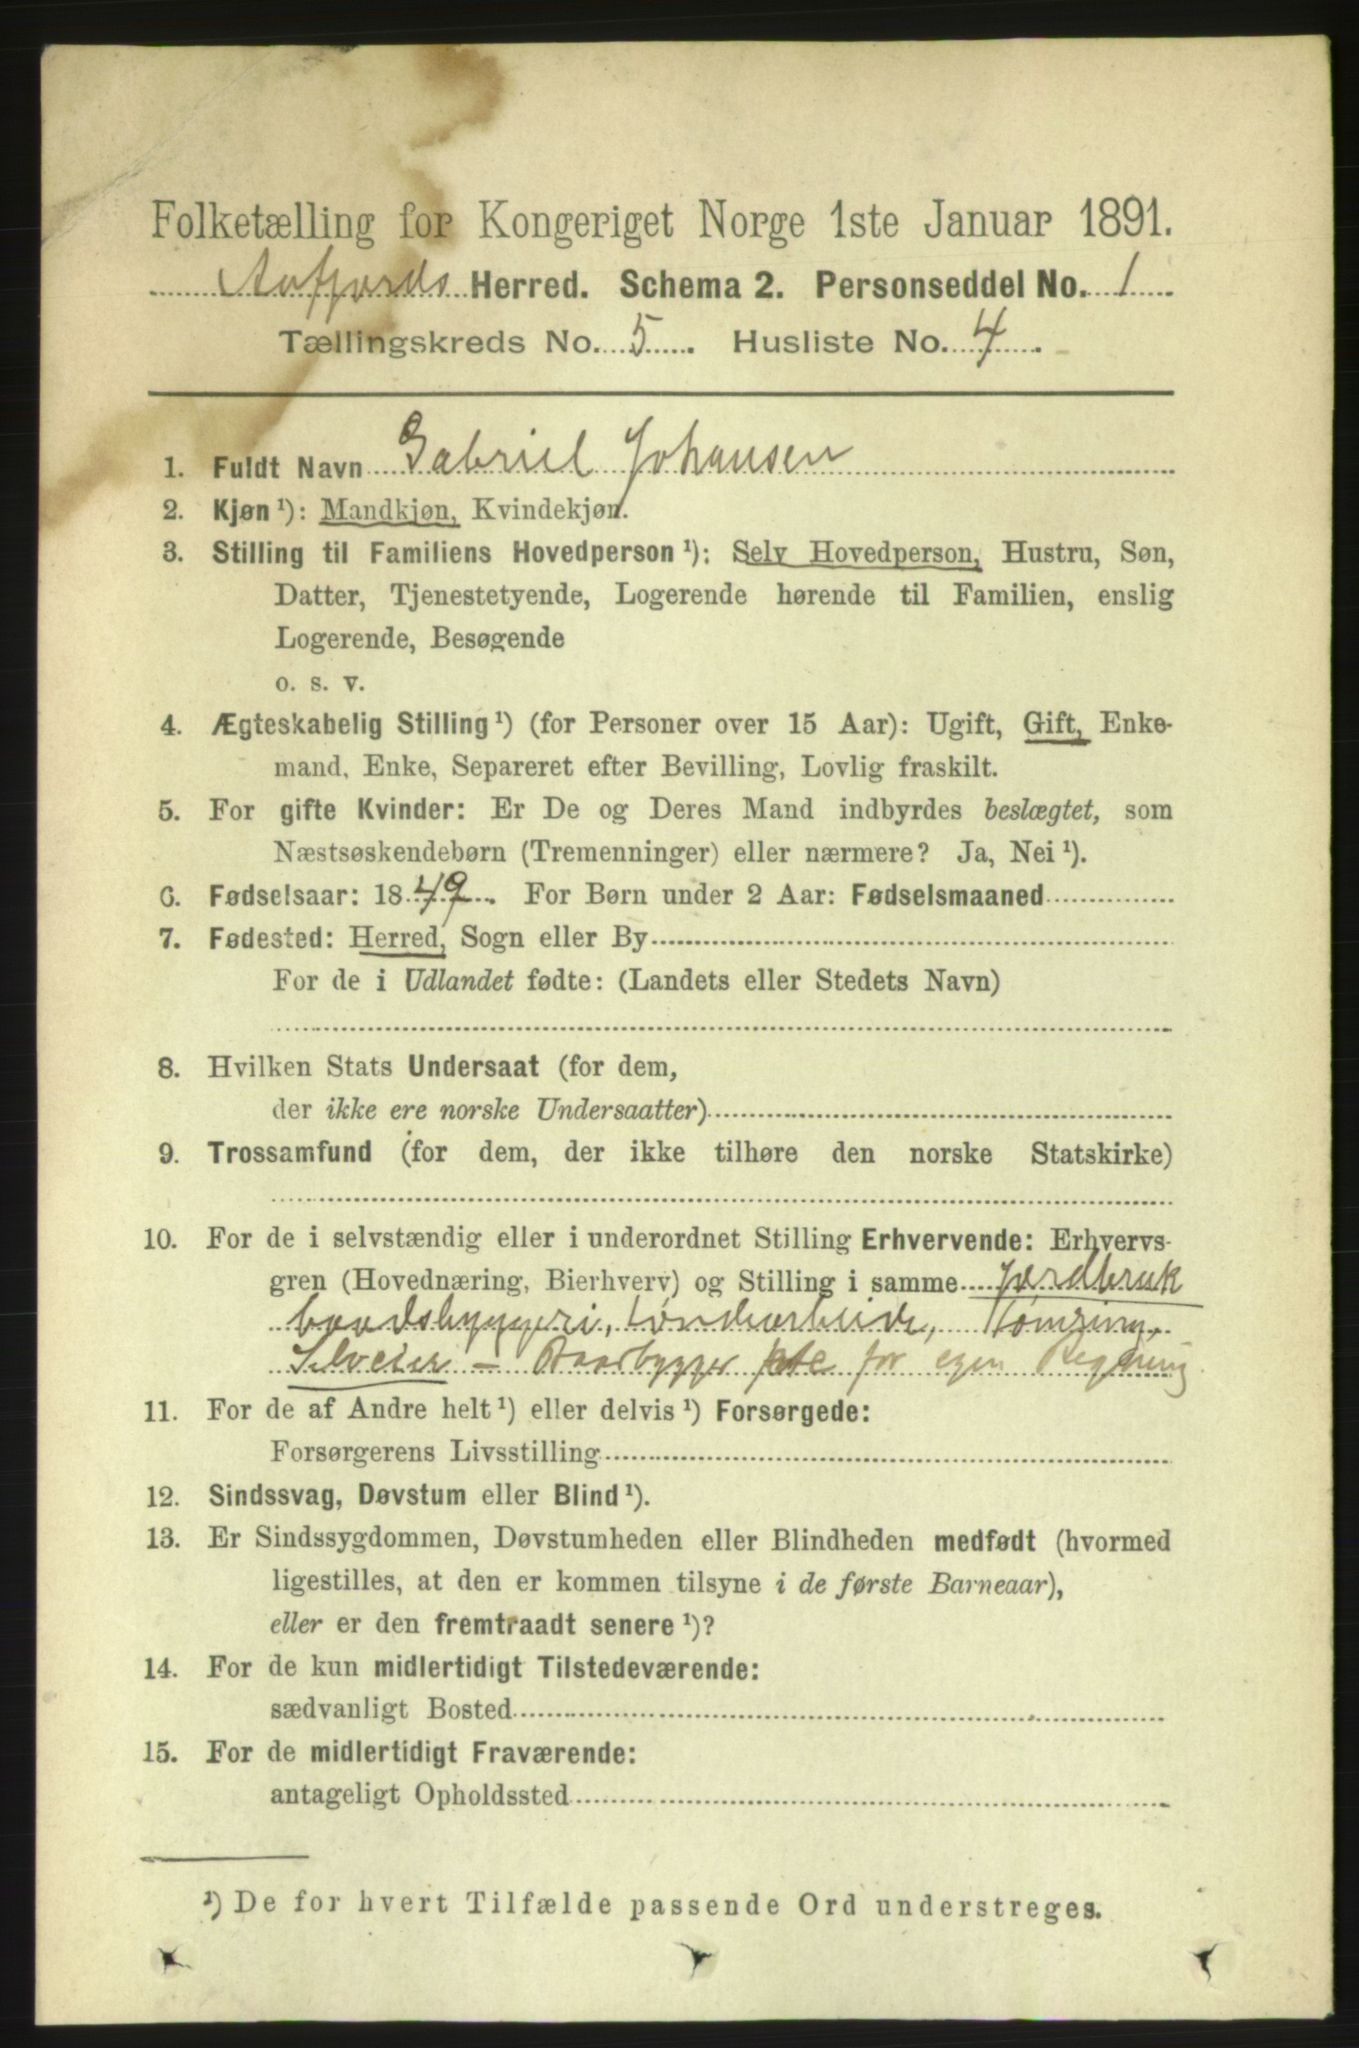 Folketælling for Kongeriget Norge 1ste Januar 1891.
Aafjords Herred. Schema 2. Personseddel No. 1
Tællingskreds No. 5. Husliste No. 4.
1. Fuldt Navn Gabriel Johansen
2. Kjøn ¹): Mandkjøn, Kvindekjøn.
3. Stilling til Familiens Hovedperson ¹): Selv Hovedperson, Hustru, Søn,
Datter, Tjenestetyende, Logerende hørende til Familien, enslig
Logerende, Besøgende
o. s. v.
4. Ægteskabelig Stilling ¹) (for Personer over 15 Aar): Ugift, Gift, Enke-
mand, Enke, Separeret efter Bevilling, Lovlig fraskilt.
5. For gifte Kvinder: Er De og Deres Mand indbyrdes beslægtet, som
Næstsøskendebørn (Tremenninger) eller nærmere? Ja, Nei ¹).
6. Fødselsaar: 1849. For Børn under 2 Aar: Fødselsmaaned
7. Fødested: Herred, Sogn eller By
For de i Udlandet fødte: (Landets eller Stedets Navn)
8. Hvilken Stats Undersaat (for dem,
der ikke ere norske Undersaatter)
9. Trossamfund (for dem, der ikke tilhøre den norske Statskirke)
10. For de i selvstændig eller i underordnet Stilling Erhvervende: Erhvervs-
gren (Hovednæring, Bierhverv) og Stilling i samme Jordbruk
baadsbyggeri, tøndearbeide, Tømring,
Selveier - Baadbygger for egen Regning
11. For de af Andre helt ¹) eller delvis ¹) Forsørgede:
Forsørgerens Livsstilling
12. Sindssvag, Døvstum eller Blind ¹).
13. Er Sindssygdommen, Døvstumheden eller Blindheden medfødt (hvormed
ligestilles, at den er kommen tilsyne i de første Barneaar),
eller er den fremtraadt senere ¹)?
14. For de kun midlertidigt Tilstedeværende:
sædvanligt Bosted
15. For de midlertidigt Fraværende:
antageligt Opholdssted
¹) De for hvert Tilfælde passende Ord understreges.